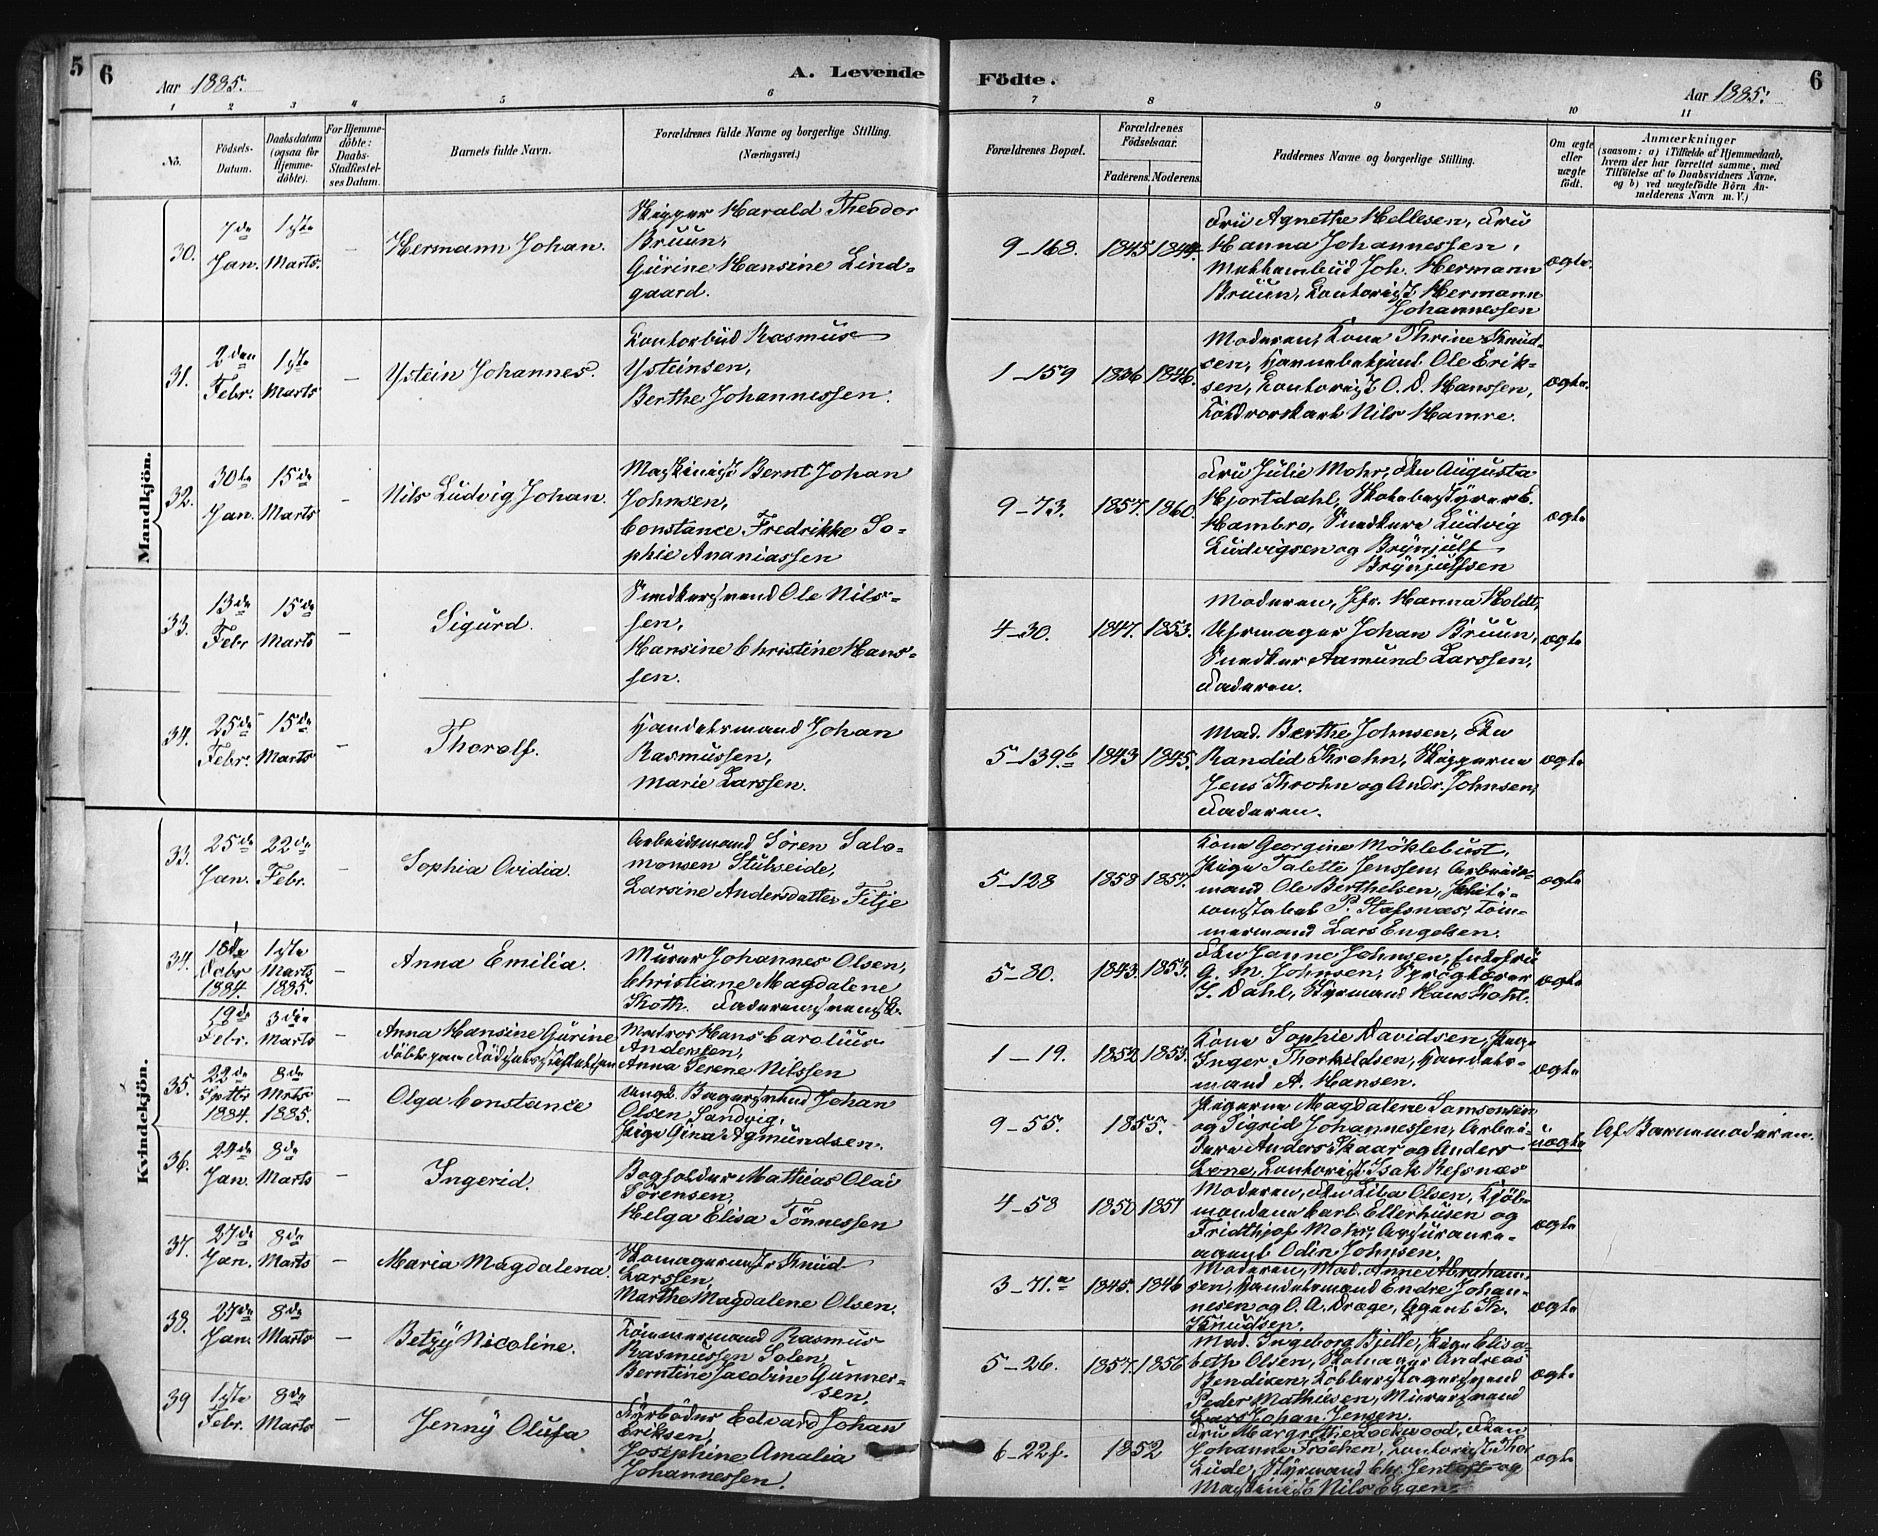 5
6
Aar 1885.
A. Levende
Födte.
Aar 1885.
6
1 2 3 4 5 6 7 8 9 10 11
No.
Födsels-
Datum.
Daabsdatum
(ogsaa for
Hjemme-
döbte).
For Hjemme-
döbte:
Daabs-
Stadfæstel-
ses Datum.
Barnets fulde Navn.
Forældrenes fulde Navne og borgerlige Stilling.
(Næringsvei.)
Forældrenes Bopæl.
Forældrenes
Födselsaar.
Faderens. Moderens.
Faddernes Navne og borgerlige Stilling.
Om ægte
eller
uægte
födt.
Anmærkninger
(saasom: a) i Tilfælde af Hjemmedaab,
hvem der har forrettet samme, med
Tilföielse af to Daabsvidners Navne,
og b) ved uægtefödte Börn An-
melderens Navn m. V.)
Mandkjön.
30.
7de
Jan.
1ste
Marts.
—
Hermann Johan.
Skipper Harald Theodor
Bruun,
Gurine Hansine Lind-
gaard.
9—168.
1845
Fru Agnethe Hellesen, Fru
Hanna Johannessen,
Joh. Hermann
Bruun, Kontorist Hermann
Johannessen
ægte.
31.
2den
Febr.
1ste
Marts
—
Ystein Johannes.
Kontorbud Rasmus
Ysteinsen,
Berthe Johannessen.
1—159
1836 1846.
Moderen, Kone Thrine Knud-
sen, Havnebetjent Ole Erik-
sen, Kontorist O. D. Hanssen,
Nils Hamre.
ægte.
32.
30te
Jan.
15de
Marts
—
Nils Ludvig Johan.
Maskinist Bernt Johan
Johnsen,
Constance Fredrikke So-
phie Ananiassen
9—73.
1857. 1860.
Fru Julie Mohr, Frk Augusta
Hjortdahl, Skolebestyrer E.
Hambro, Snedkere Ludvig
Ludvigsen og Brynjulf
Brynjulfsen
ægte
33.
13de
Febr
15de
Marts
—
Sigurd.
Snedkersvend Ole Nils-
sen,
Hansine Christine Hans-
sen.
4—30.
1847. 1853.
Moderen, Jfr. Hanna Holdt,
Uhrmager Johan Bruun,
Snedker Aamund Larssen,
Faderen.
ægte
34.
25de
Febr.
15de
Marts
—
Thorolf.
Handelsmand Johan
Rasmussen,
Marie Larssen.
5—139.b
1843 1845.
Mad. Berthe Johnsen, Frk
Randid Krohn, Skipperne
Jens Krohn og Andr. Johnsen,
Faderen.
ægte
Kvindekjön.
33.
25de
Jan.
22de
Febr.
—
Sophia Ovidia.
Arbeidsmand Sören Salo-
monsen Stulseide,
Larsine Andersdatter Fitje
5—128
1858 1857.
Kone Georgine Möklebust,
Pige Talette Jenssen, Arbeids-
mand Ole Berthelsen, Politi-
konstabel P. Stafsnæs, Töm-
mermand Lars Engelsen.
ægte
34.
18de
Debr
1884.
1ste
Marts
1885.
—
Anna Emilia.
Murer Johannes Olsen,
Christiane Magdalene
Koth. Faderen svensk.
5—80.
1843. 1855.
Frk Janne Johnsen, Enkefru
G. M. Johnsen, Sproglærer
J. Dahl, Styrmand Hans Kohl.
ægte
19de
Febr.
3die
Marts
—
Anna Hansine Gurine
döbt paa Födselsstiftelsen
Matros Hans Carolius
Anderssen,
Anna Serene Nilssen
1—19.
1852. 1853.
Kone Sophie Davidsen, Pige
Inger Thorkildsen, Handels-
mand A. Hansen.
ægte
35.
22de
Sptbr
1884
8de
Mrts
1885.
—
Olga Constance
Ungk. Bagersvend Johan
Olsen Sandvig,
Pige Gina Agmundsen.
9—55.
1855.
Pigerne Magdalene Samsonsen
og Sigrid Johannessen, Arbei-
dere Anders Skaar og Anders
Lone, Kontorist Isak Refsnæs
uægte
Af Barnemoderen.
36.
24de
Jan.
8de
Marts
—
Ingerid.
Bogholder Mathias Olai
Sörensen,
Helga Elisa Tönnessen
4—58
1850 1857
Moderen, Frk Lika Olsen, Kjöb-
mændene Carl Ellerhusen og
Fridthjof Mohr, Assurance-
agent Odin Johnsen.
ægte
37.
27de
Jan.
8de
Marts
—
Maria Magdalena.
Skomagermester Knud
Larssen,
Marthe Magdalene Olsen.
3—71.a
1845. 1846
Moderen, Mad. Anne Abraham-
sen, Handelsmand Endre Johan-
nesen og O. A. Drage, Agent Th.
Knudsen.
ægte
38.
27de
Jan.
8de
Marts
—
Betzÿ Nicoline.
Tömmermand Rasmus
Rasmussen Solen,
Berntine Jacobine Gunner-
sen,
5—26.
1857. 1856
Mad. Ingeborg Bjelle, Pige Elisa-
beth Olsen, Skomager Andreas
Bendixen, Kobberslagersvend
Peder Mathiesen, Murersvend
Lars Johan Jensen.
ægte.
39
1ste
Febr.
8de
Marts
—
Jennÿ Olufa
Fyrböder Edvard Johan
Eriksen,
Josephine Amalia
Johannessen.
6—22f.
1852
Fru Margrethe Lockwood,
Johanne Fröchen, Kontorist Thor
Lude, Styrmand Chr. Jentoft og
Maskinist Nils Eggen.
ægte